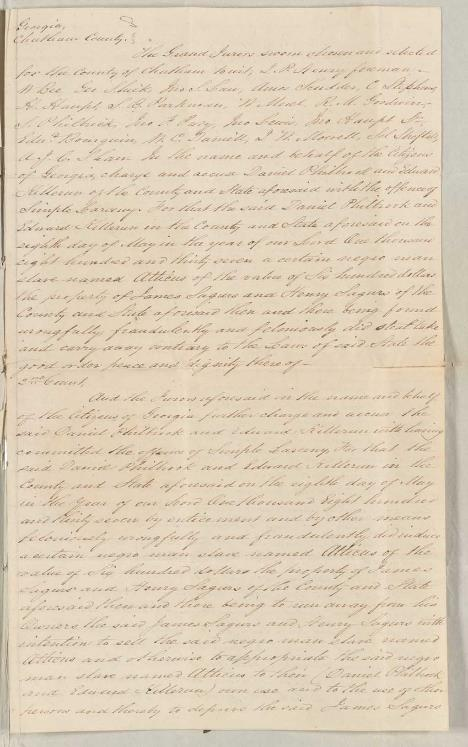 Georgia,
Chatham County.
The Grand Jurors sworn chosen and selected
for the County of Chatham towit, J. P. Henry foreman,
W. Gee Shick, Jno J. Amos Scudder, C. Stephens,
H. Haupt, S. C. Parkman, W. R. M. Goodwin,
S. Philbrick, Jno F. Jno Lewis, Jno Haupt Sr.
Edwd. Bourquin, W. C. Daniell, J. W. Morrell, Sol Sheftall,
A. J. C. Shaw In the name and behalf of the Citizens
of Georgia, charge and accuse Daniel Philbrook and Edward
Killeran of the County and State aforesaid with the offence of
Simple Larceny. For that the said Daniel Philbrook and
Edward Killeran in the County and State aforesaid on the
eighth day of May in the year of our Lord One thousand
eight hundred and thirty seven a certain negro man
slave named Atticus of the value of Six hundred dollars
the property of James Sagurs and Henry Sagurs of the
County and State aforesaid then and there being found
wrongfully fraudulently and feloniously did steal take
and carry away contrary to the Laws of said State the
good order peace and dignity thereof—
2nd Count.
And the Jurors aforesaid in the name and behalf
of the Citizens of Georgia further charge and accuse the
said Daniel Philbrook and Edward Killeran with having
committed the offence of Simple Larceny. For that the
said Daniel Philbrook and Edward Killeran in the
County and State aforesaid on the eighth day of May
in the Year of our Lord One thousand Eight hundred
and thirty seven by enticement and by other means
feloniously wrongfully and fraudulently did induce
a certain negro man slave named Atticus of the
value of Six hundred dollars the property of James
Sagurs and Henry Sagurs of the County and State
aforesaid then and there being to run away from his
Owners the said James Sagurs and Henry Sagurs with
intention to sell the said negro man slave named
Atticus and otherwise to appropriate the said negro
man slave named Atticus to them (Daniel Philbrook
and Edward Killeran) own use and to the use of other
persons and thereby to deprive the said James Sagurs